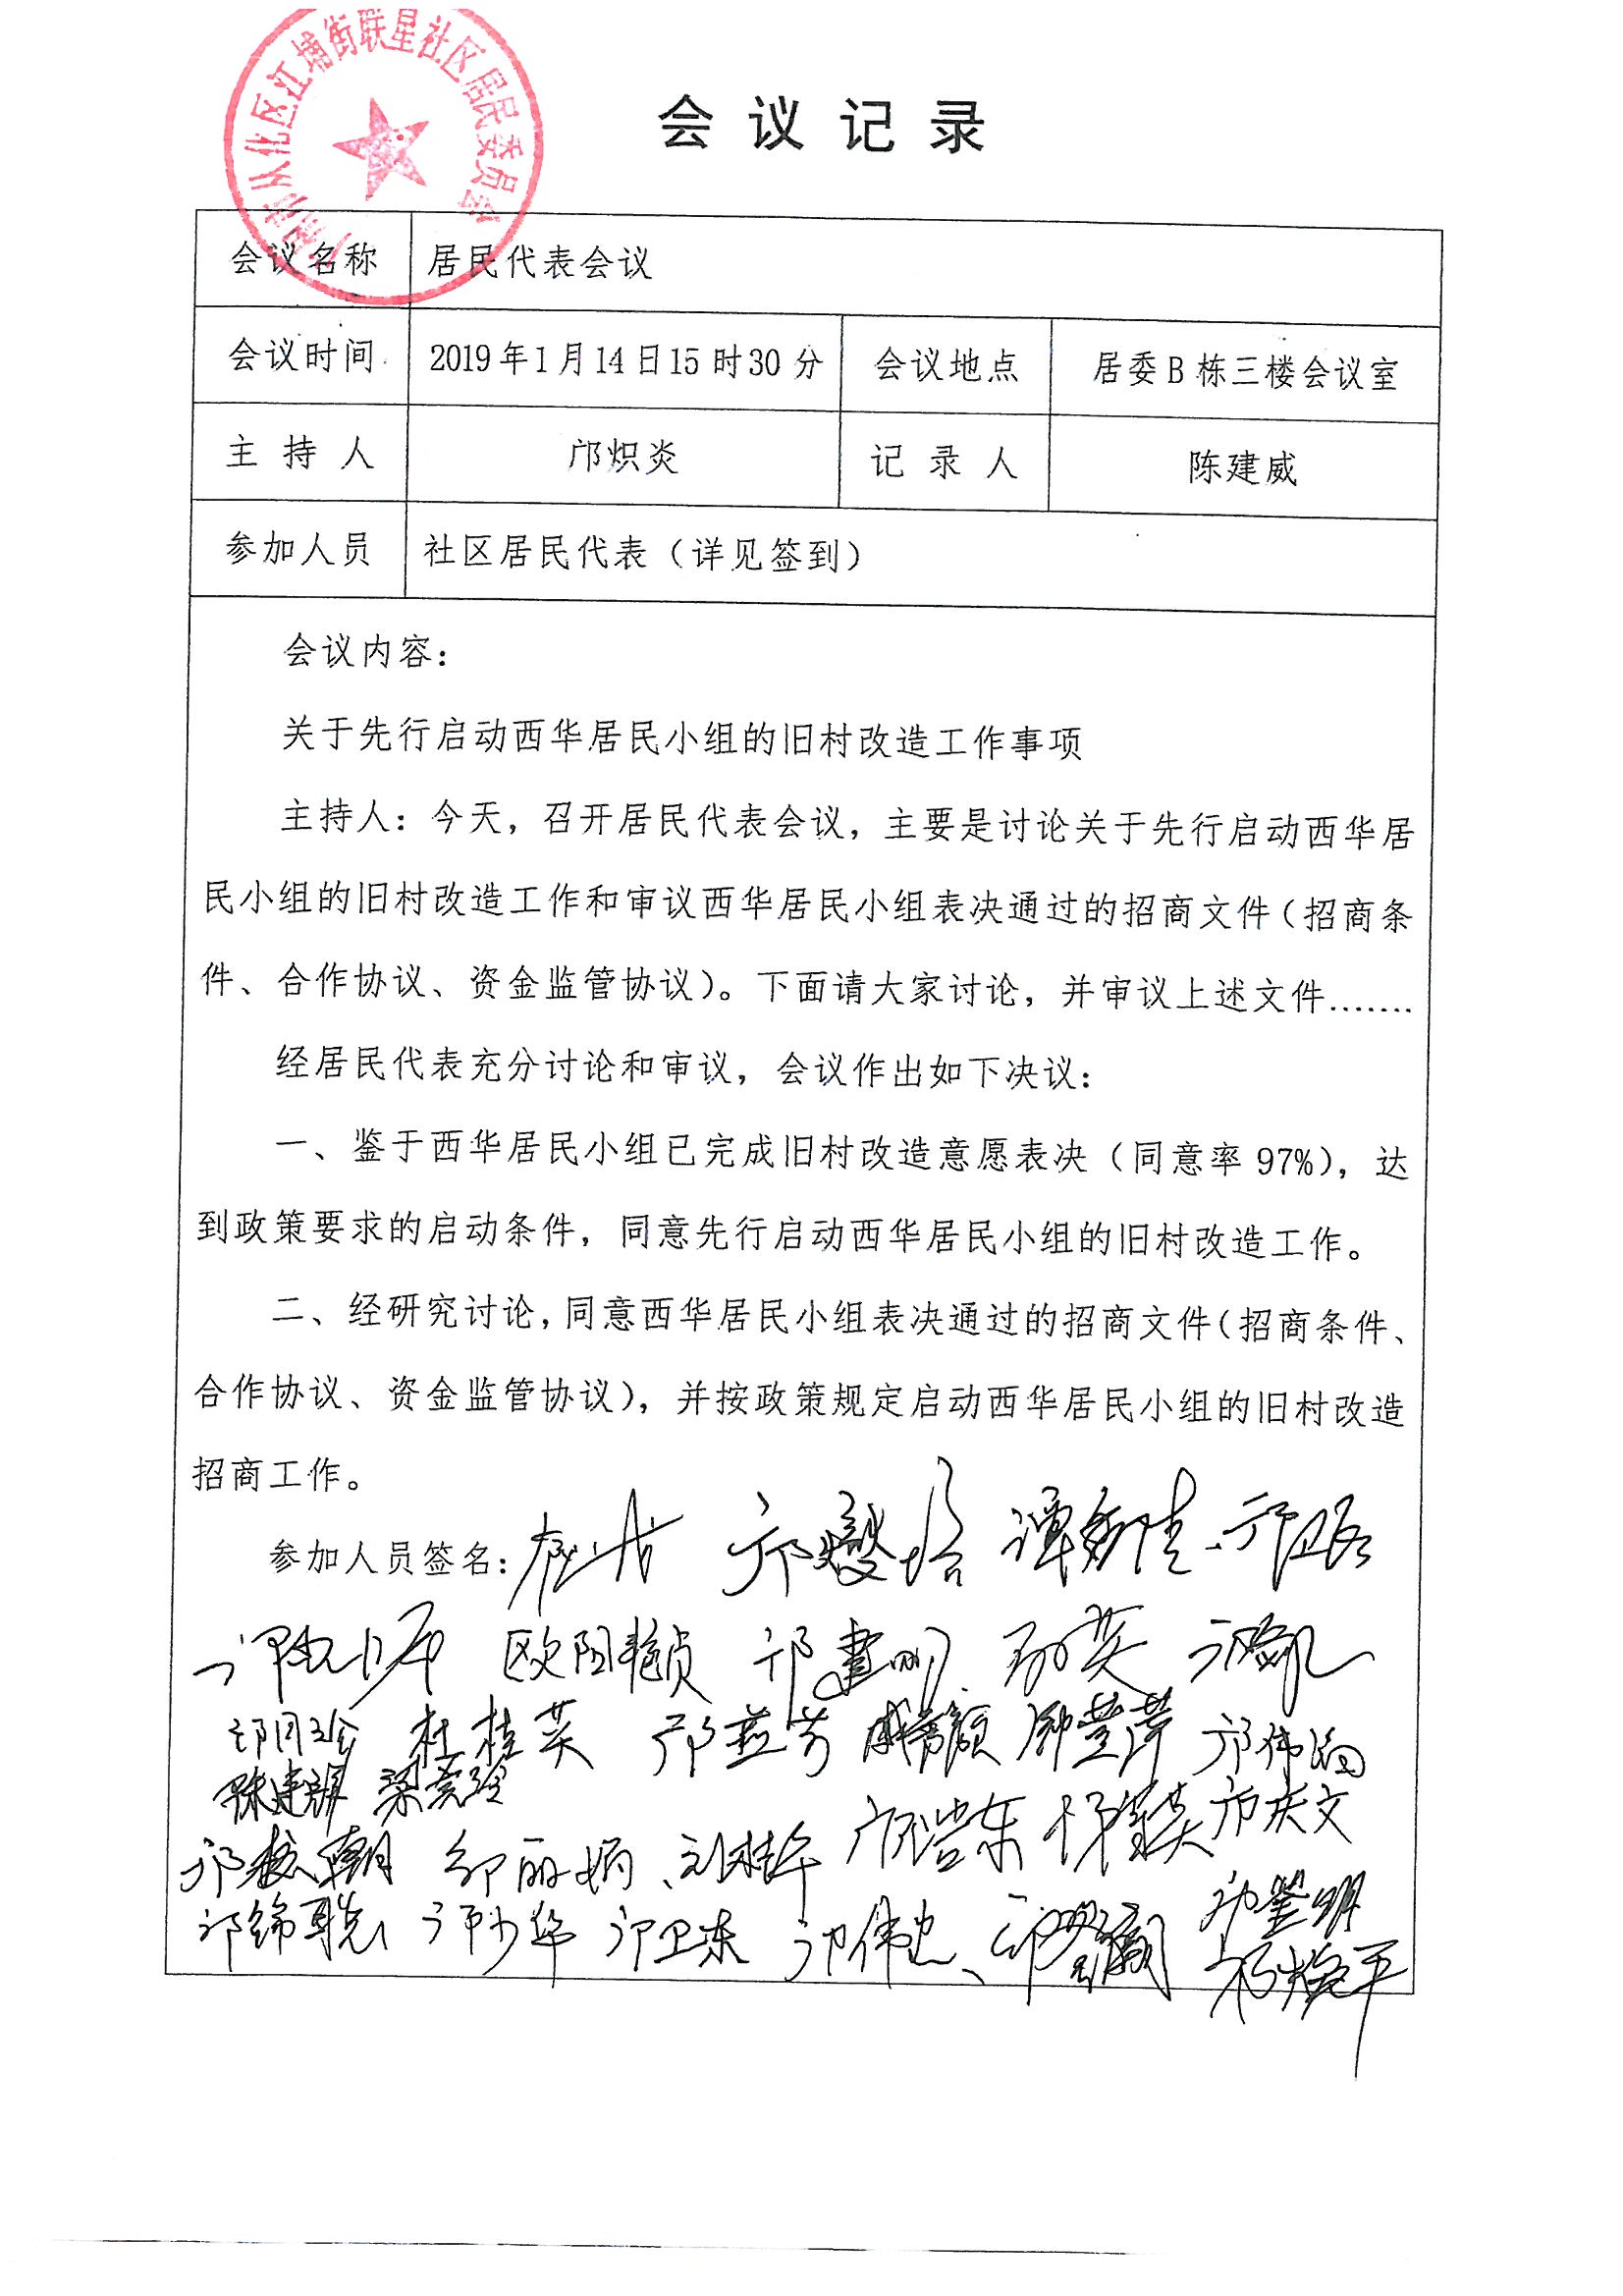 广州市从化区江埔街联星社区居民委员会
会议记录
会议名称 居民代表会议
会议时间 2019年1月14日15时30分 会议地点 居委B栋三楼会议室
主持人 邝炽炎 记录人 陈建威
参加人员 社区居民代表（详见签到）
会议内容：
关于先行启动西华居民小组的旧村改造工作事项
主持人：今天，召开居民代表会议，主要是讨论关于先行启动西华居
民小组的旧村改造工作和审议西华居民小组表决通过的招商文件（招商条
件、合作协议、资金监管协议）。下面请大家讨论，并审议上述文件.......
经居民代表充分讨论和审议，会议作出如下决议：
一、鉴于西华居民小组已完成旧村改造意愿表决（同意率97%），达
到政策要求的启动条件，同意先行启动西华居民小组的旧村改造工作。
二、经研究讨论，同意西华居民小组表决通过的招商文件（招商条件、
合作协议、资金监管协议），并按政策规定启动西华居民小组的旧村改造
招商工作。
参加人员签名：
欧阳艳贞 邝建明
杜桂英
邝庆文
邝卫东 邝伟忠